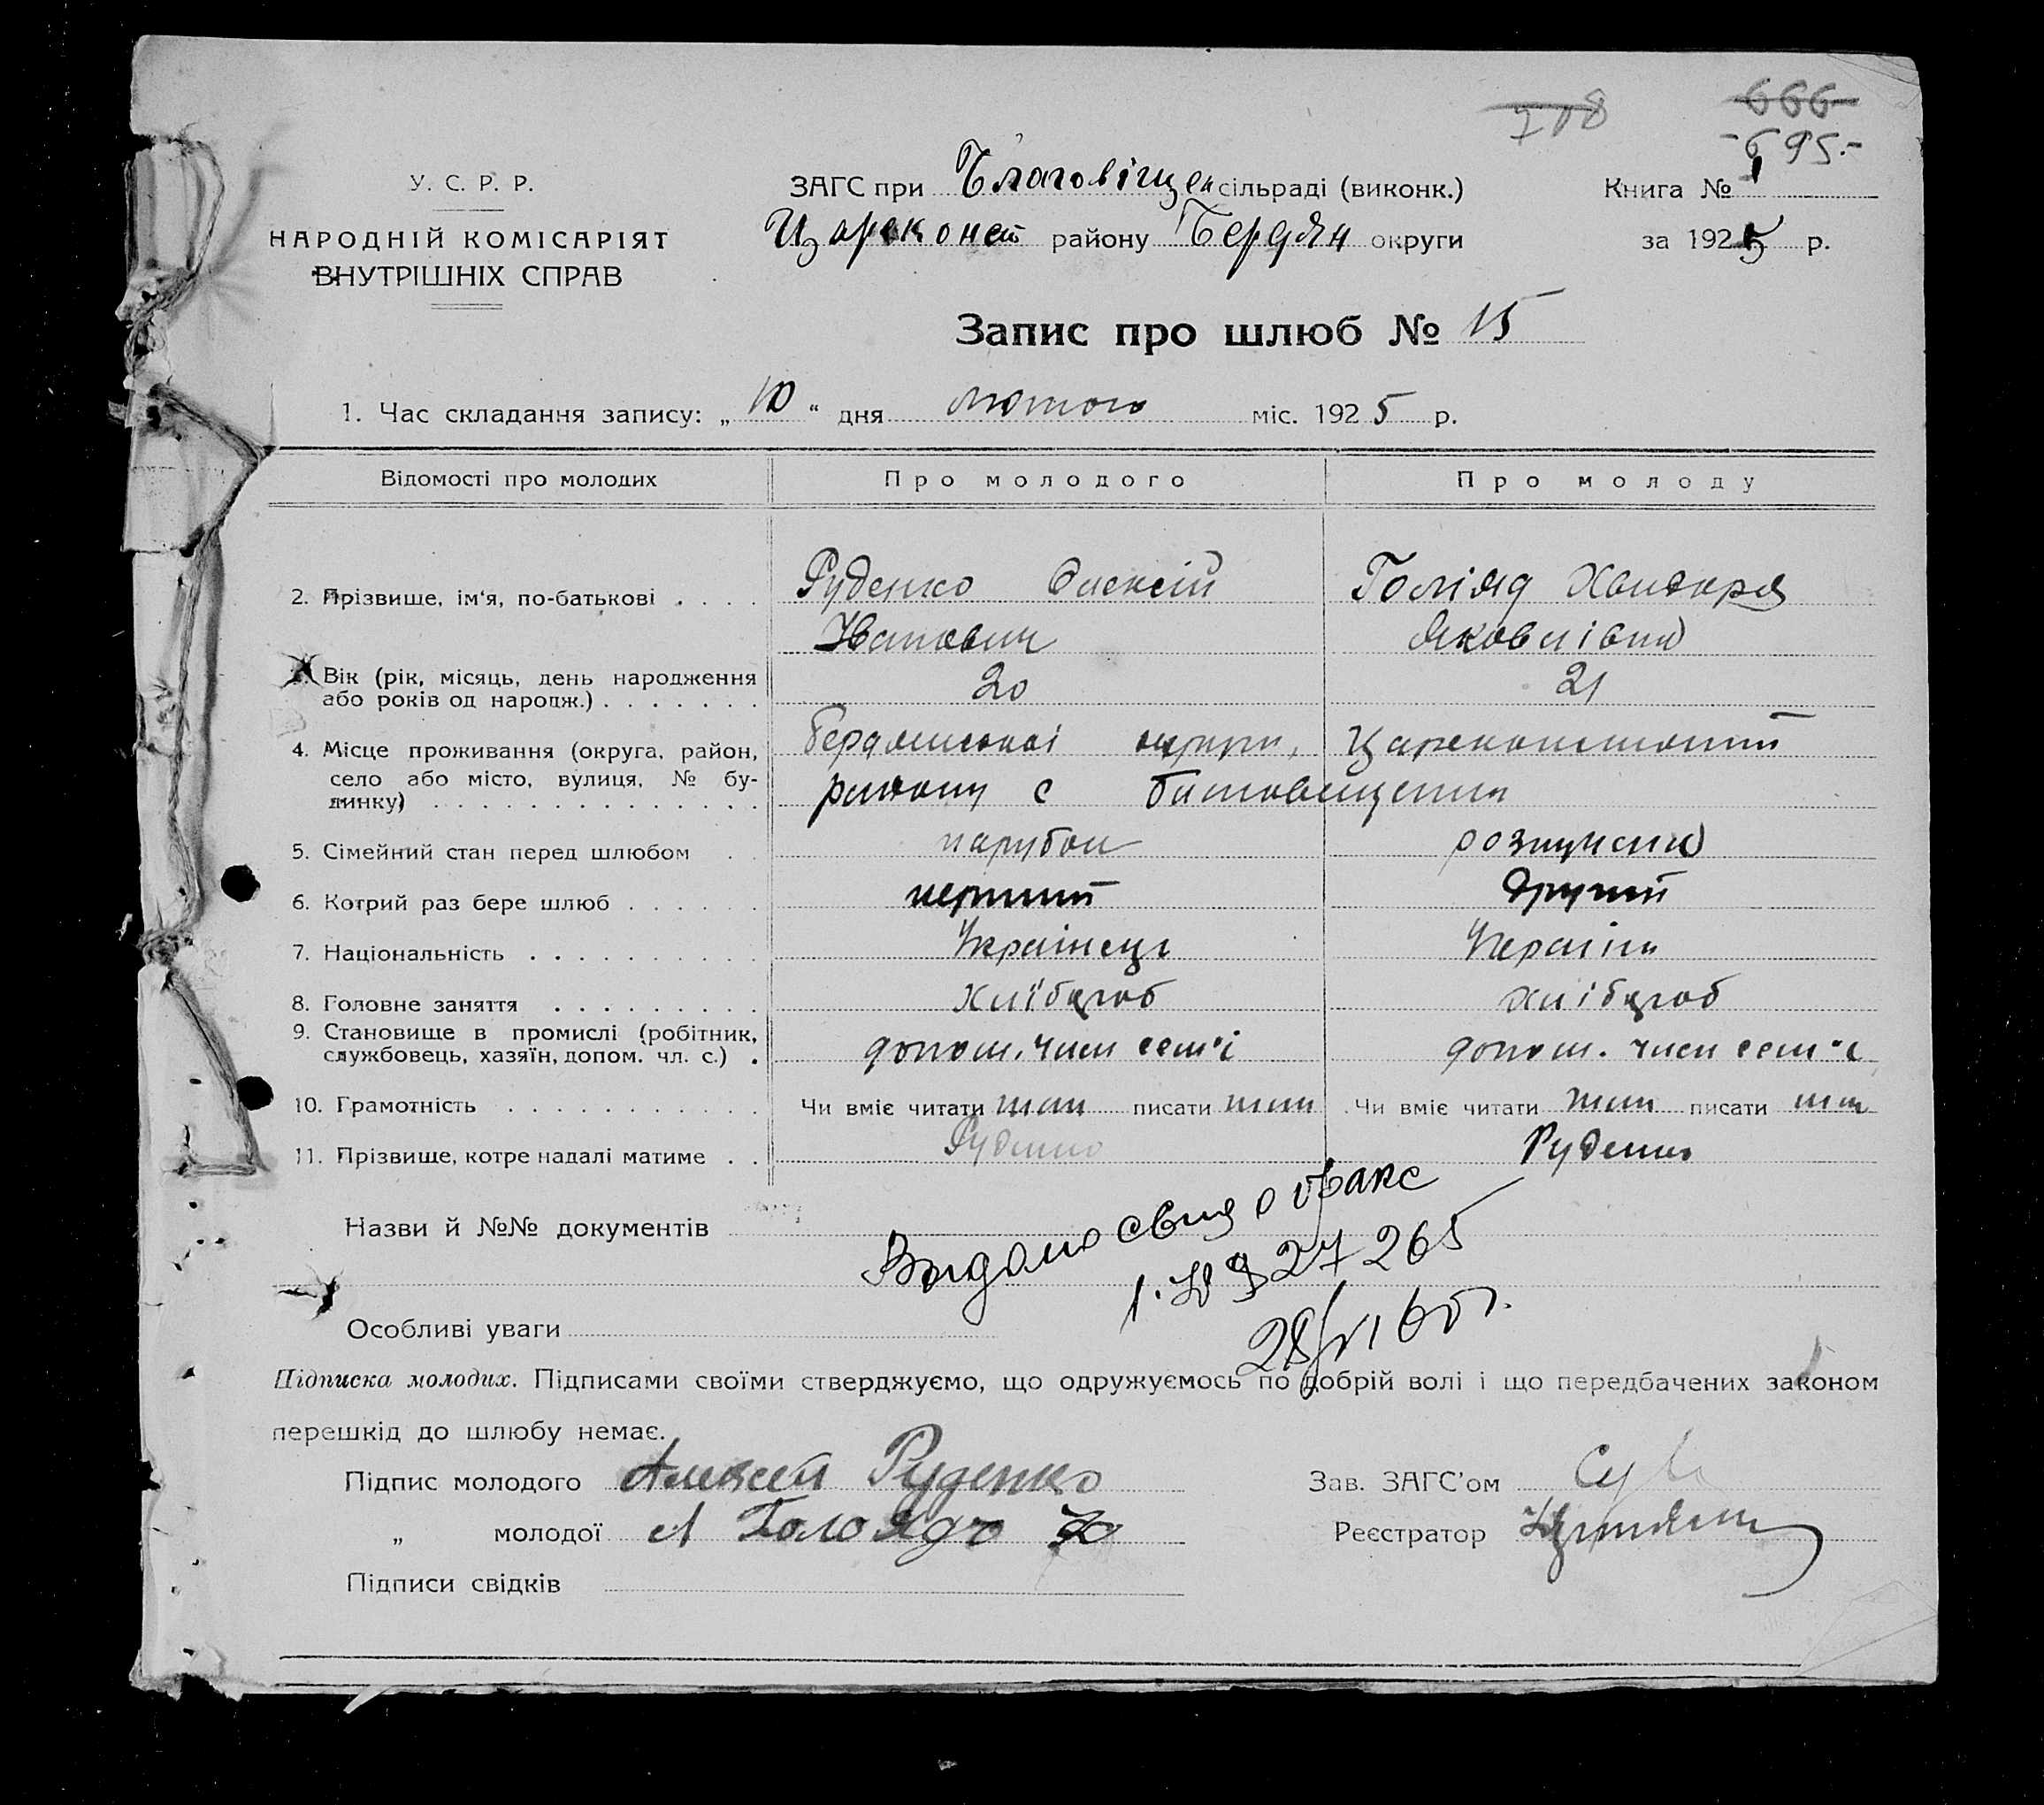 708
666
- 695.-
У. С. Р. Р.
НАРОДНІЙ КОМІСАРІЯТ
ВНУТРІШНІХ СПРАВ
ЗАГС при Благовіщен сільраді (виконк.)
Цареконст району Бердян округи
Книга № 1
за 1925 р.
Запис про шлюб № 15
1. Час складання запису: „ 10 “ дня лютого міс. 1925 р.
Відомості про молодих
Про молодого
Про молоду
2. Прізвище, ім'я, по-батькові . . . .
Руденко Олексій
Іванович
Голіяд
Яковлівна
3. Вік (рік, місяць, день народження
або років од народж.) . . . . . . .
20
21
4. Місце проживання (округа, район,
село або місто, вулиця, № бу-
динку) . . . . . . . . . . . . . .
Бердянської округи, Цареконстант
району с Благовещенка
5. Сімейний стан перед шлюбом . .
парубок
розлучена
6. Котрий раз бере шлюб . . . . . .
перший
другий
7. Національність . . . . . . . . . .
Українець
Україн
8. Головне заняття . . . . . . . . .
хлібороб
хлібороб
9. Становище в промислі (робітник,
службовець, хазяїн, допом. чл. с.) .
допом. член сем'ї
допом. член сем'ї
10. Грамотність . . . . . . . . . . .
Чи вміє читати так писати так
Чи вміє читати так писати так
11. Прізвище, котре надалі матиме . .
Руденко
Руденко
Назви й №№ документів
Видано свид о браке
27265
28/VI 60 г.
Особливі уваги
Підписка молодих. Підписами своїми стверджуємо, що одружуємось по добрій волі і що передбачених законом
перешкід до шлюбу немає.
Підпис молодого Алексей Руденко
„ молодої
Підписи свідків
Зав. ЗАГС'ом
Реєстратор